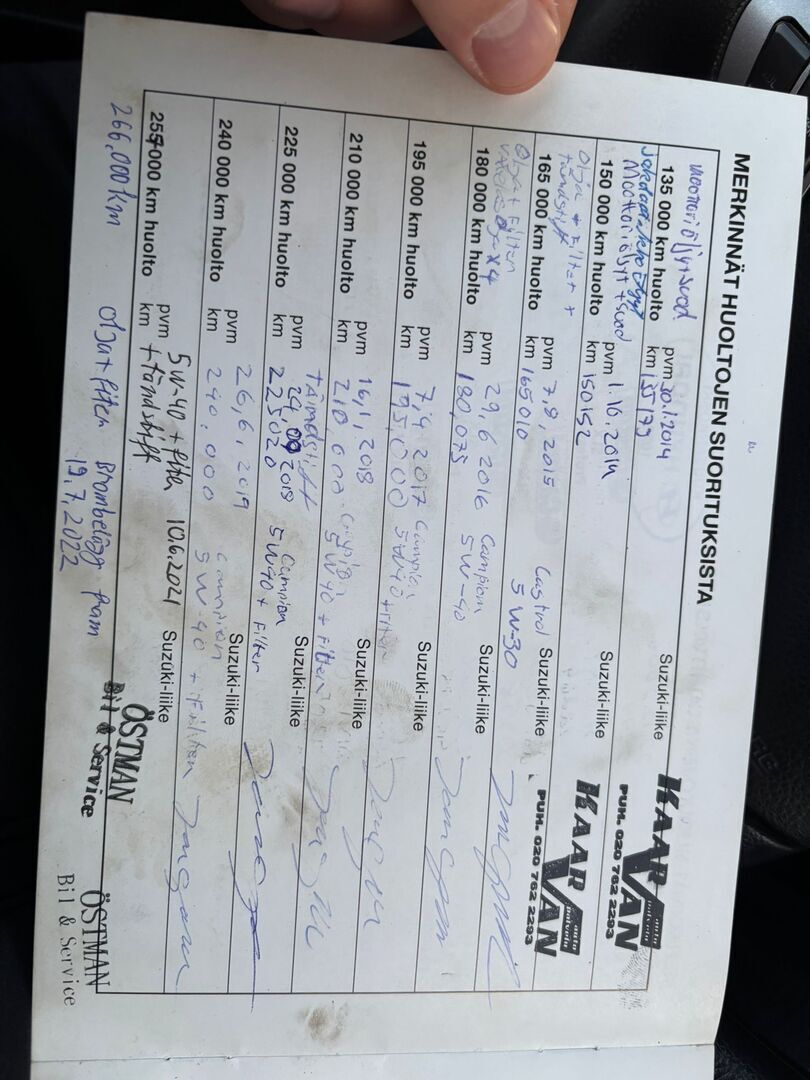 MERKINNÄT HUOLTOJEN SUORITUKSISTA
moottoriöljy+suod
135 000 km huolto pvm 30.1.2014 Suzuki-liike
km 135179
KAAR VAN auto palvelu
PUH. 020 762 2293
Moottoriöljyt+suod
150 000 km huolto pvm 1.10.2014 Suzuki-liike
km 150152
KAAR VAN auto palvelu
PUH. 020 762 2293
Olja + Filter +
tändstift
165 000 km huolto pvm 7,8,2015 Castrol Suzuki-liike
km 165010 5W-30
Olja + Filter
180 000 km huolto pvm 29,6 2016 Campion Suzuki-liike
km 180,075 5W-40
195 000 km huolto pvm 7,4 2017 Campion Suzuki-liike
km 195,000 5W40+Filter
210 000 km huolto pvm 16,1,2018 Suzuki-liike
km 210,000 5W40 + Filter
tändstift
225 000 km huolto pvm 24,09,2018 Campion Suzuki-liike
km 225020 5W40 + Filter
240 000 km huolto pvm 26,6,2019 Campion Suzuki-liike
km 240.000 5W-40 + Filter
255000 km huolto pvm 5W-40 + filter 10.6.2021 Suzuki-liike
km + tändstift
ÖSTMAN
Bil & Service
266,000 km olja+filter Brombelägg fram
19.7.2022
ÖSTMAN
Bil & Service